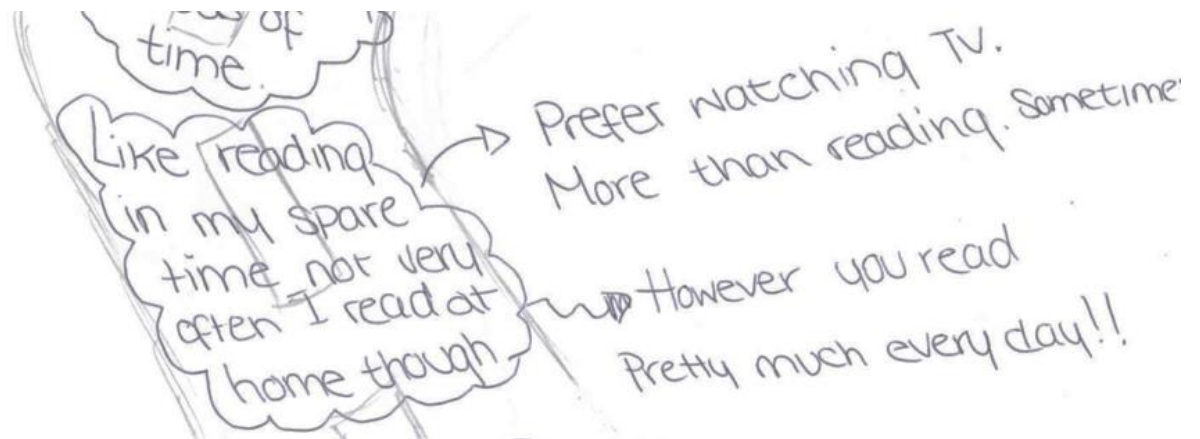 of
time.
Like reading
in my spare
time not very
often I read at
home though
Prefer watching TV.
More than reading. Sometimes
However you read
Pretty much every day!!